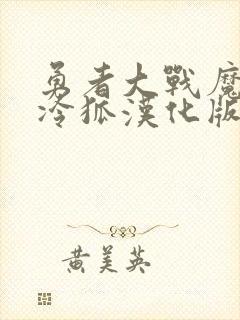 勇者大戰魔
冷狐漢化版
黄美英